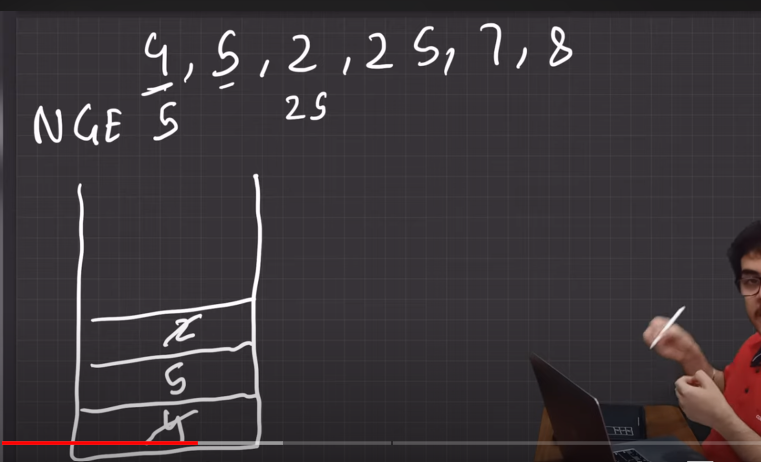 4, 5, 2, 25, 7, 8
NGE 5 25
2
5
4